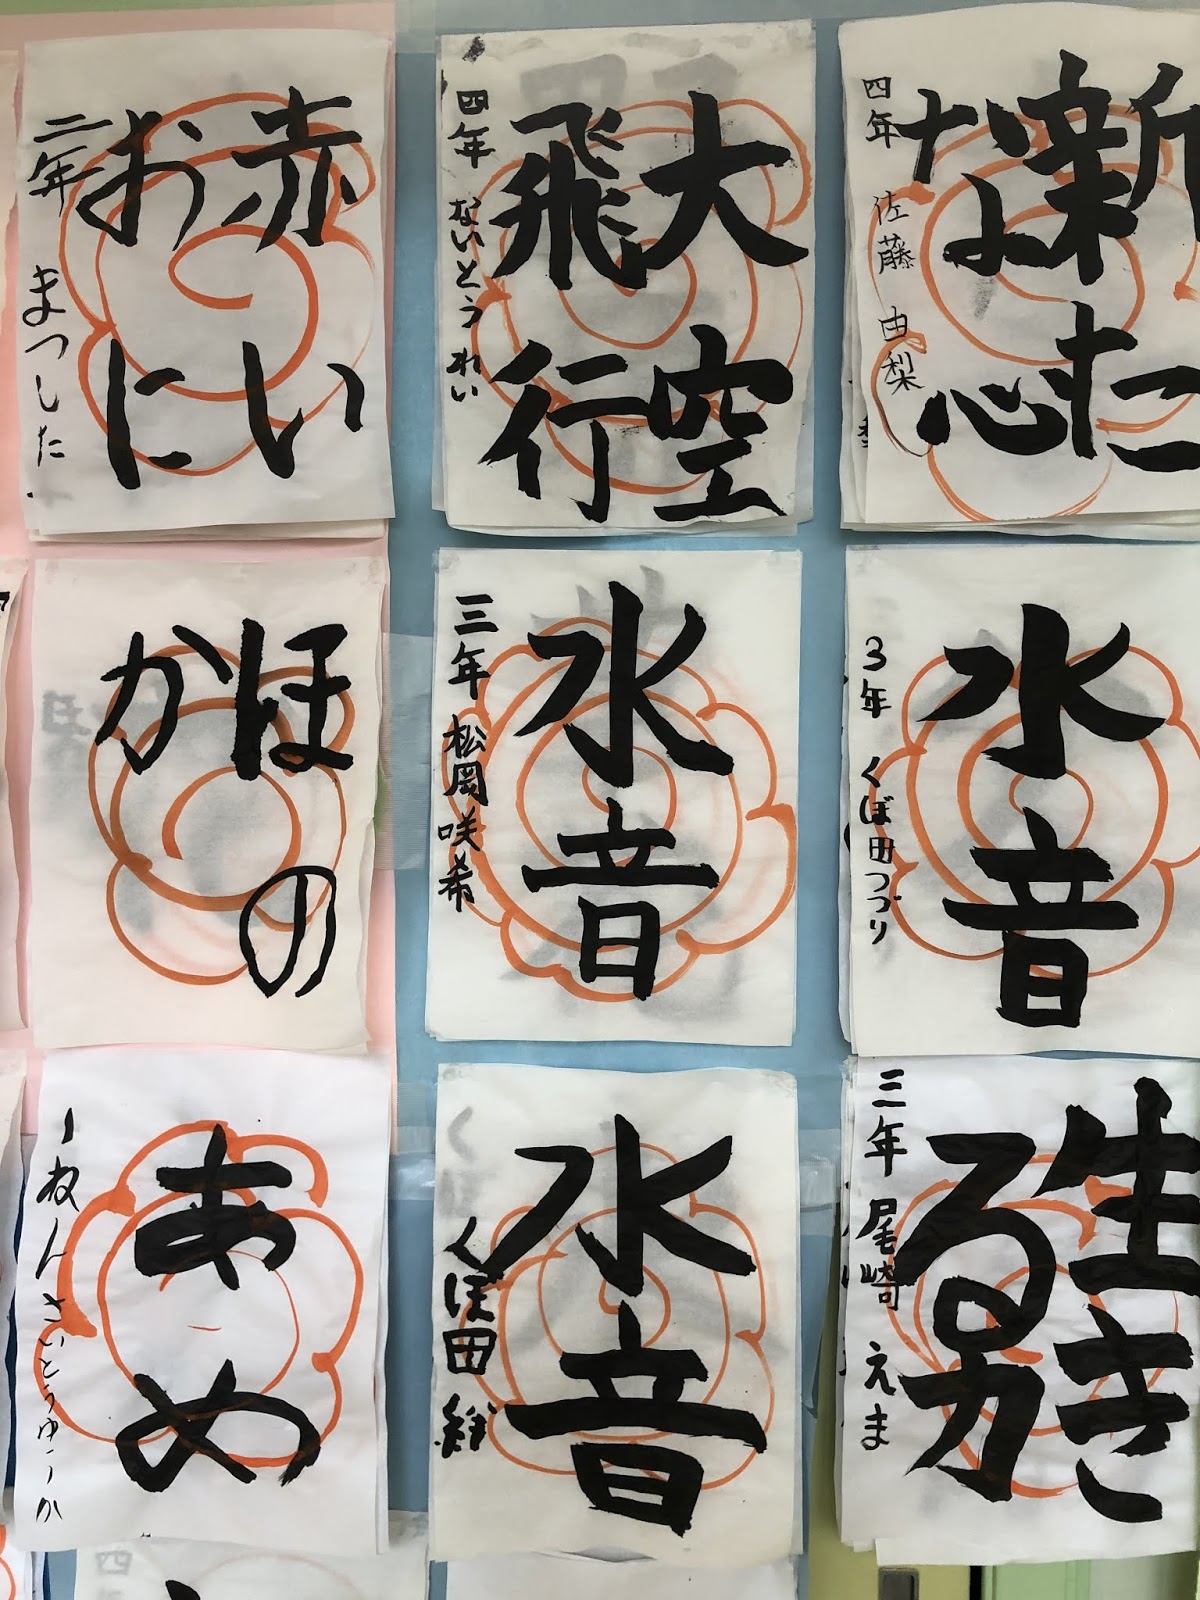 赤い
おに
二年 まつした
大空
飛行
四年 ないとうれい
新た
な心
四年 佐藤 由梨
ほの
か
水音
三年 松岡咲希
水音
3年 くぼ田つづり
あめ
一ねん さいとうゆうか
水音
くぼ田
生き
る力
三年 尾崎 えま